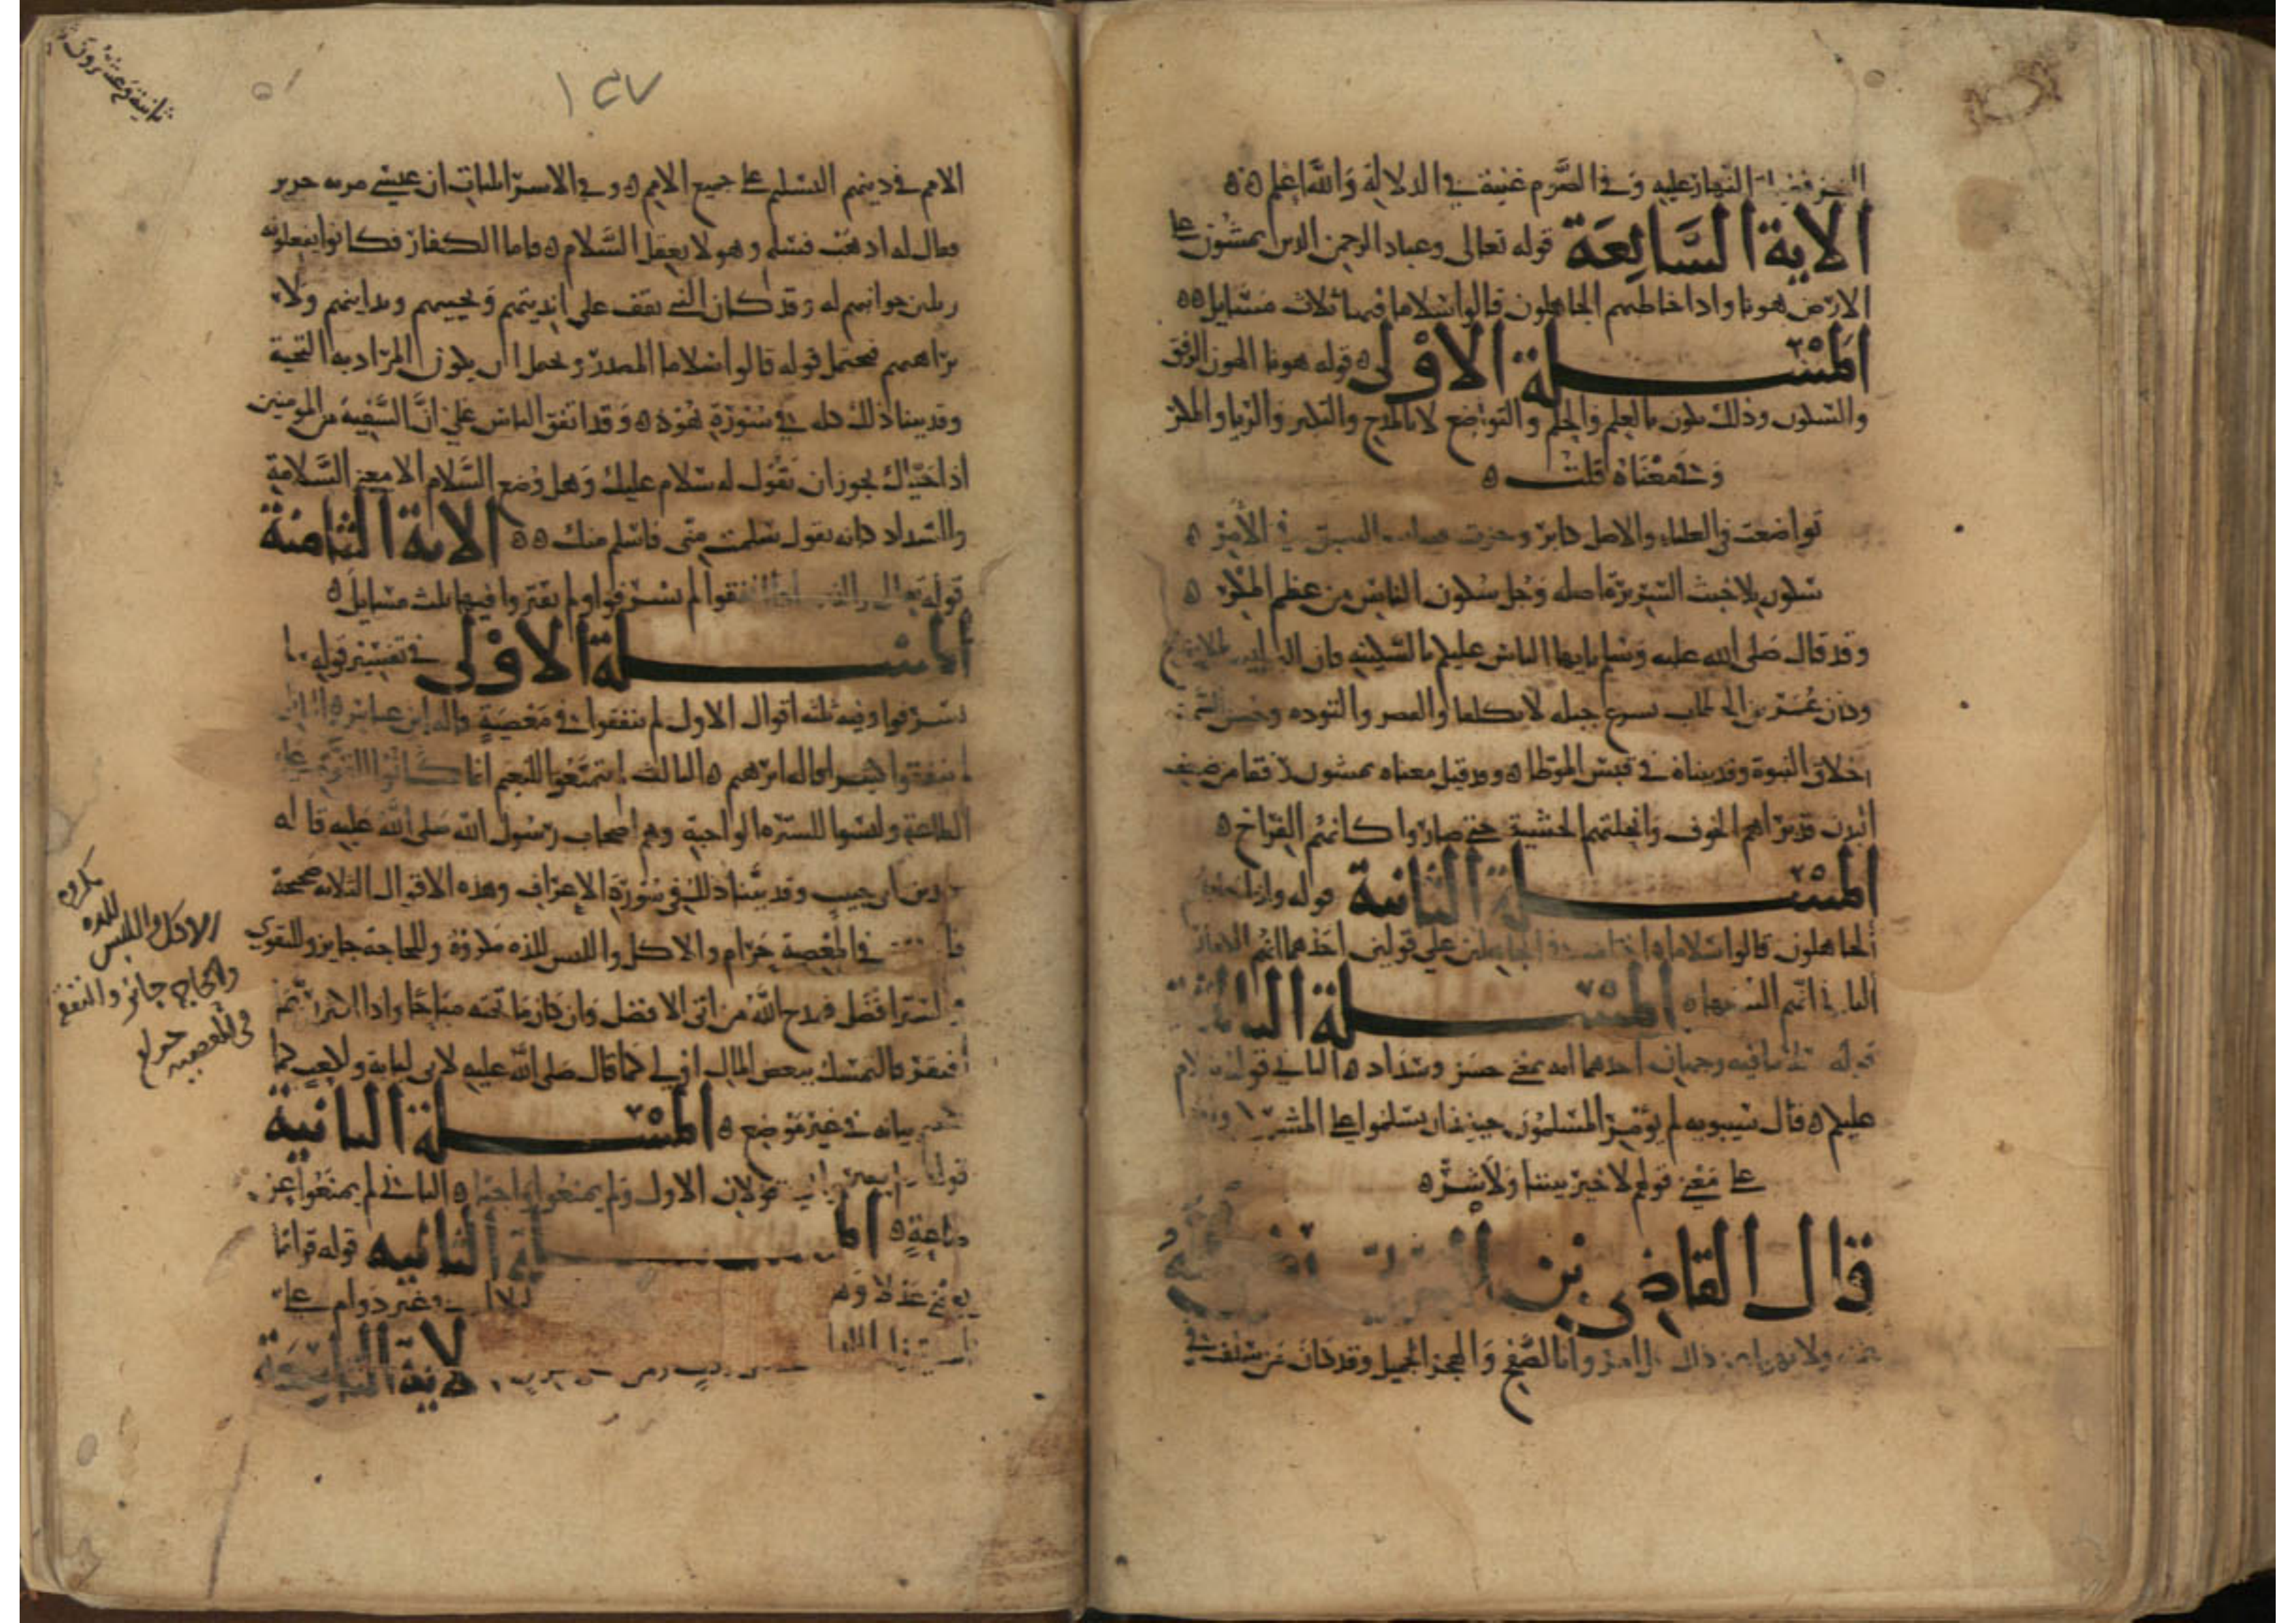 النهار عليه وفي الصوم غنية في الدلالة والله اعلم
الاية السابعة قوله تعالى وعباد الرحمن الذين يمشون على
الارض هونا واذا خاطبهم الجاهلون قالوا سلاما فيها ثلاث مسايل
المسلة الاولى قوله هونا الهون الرفق
والسكون وذلك يكون بالعلم والحلم والتواضع لا بالمدح والكبر والريا والمكر
وفي معناه قلت
تواضعت في العلياء والاصل كابر وحزت السبق في الأمر
سكون بلا خبث السريرة اصله وجل سكون الناس من عظم الكبر
وقد قال صلى الله عليه وسلم يايها الناس عليكم بالسكينة فان البر ليس
وكان عمر بن الخطاب يسرع جبلة لا تكلفا والقصد والتوده وحسن السمت
اخلاق النبوة وقد بيناه في قبس الموطا وقد قيل معناه يمشون رفقا من ضعف
البدن قد براهم الخوف وانحلتهم الخشية حتى صاروا كانهم الفراخ
المسلة الثانية قوله واذا خاطبهم
الجاهلون قالوا سلاما اختلف في الجاهلين على قولين احدهما انهم الكفار
الثاني انهم السفها المسلة الثالثة
قوله سلاما فيه وجهان احدهما انه بمعنى حسن وسداد الثاني قولك سلام
عليكم قال سيبويه لم يؤمر المسلمون حينئذ ان يسلموا على المشركين
على معنى قولهم لا خير بيننا ولا شر
قال القاضي بن
ولا نهوا عن ذلك بل امروا بالصفح والهجر الجميل وقد كان من سلف في
ثمانية وعشرون
١٤٧
الامم في دينهم التسليم على جميع الامم وفي الاسرائيليات ان عيسى مر به خنزير
فقال له اذهب فسلم وهو لا يعقل السلام فاما الكفار فكانوا يفعلونه
وتلين جوانبهم له وقد كان النبي يقف على انديتهم ويحييهم ويدانيهم ولا
يداهنهم فيحتمل قوله قالوا سلاما المصدر ويحتمل ان يكون المراد به التحية
وقد بينا ذلك كله في سورة هود وقد اتفق الناس على ان السفيه من المومنين
اذا جفاك يجوز ان تقول له سلام عليك وهل وضع السلام الا معنى السلامة
والسداد كانه يقول سلمت مني فاسلم منك الاية الثامنة
قوله تعالى والذين اذا انفقوا لم يسرفوا ولم يقتروا فيها ثلث مسايل
المسلة الاولى في تفسير قوله لم
يسرفوا وفيه ثلثة اقوال الاول لم ينفقوا في معصية قاله ابن عباس الثاني
لم ينفقوا كثيرا قاله ابرهيم الثالث لم يتمتعوا للنعيم انما كانوا للتقوى على
الطاعة ولبسوا للسترة الواجبة وهم اصحاب رسول الله صلى الله عليه قاله
يزيد بن ابي حبيب وقد بينا ذلك في سورة الاعراف وهذه الاقوال الثلاثة صحيحة
فالنفقة في المعصية حرام والاكل واللبس للذة مكروه وللحاجة جايز وللتقوى
والستر افضل فمدح الله من اتى الافضل وان كان ما تحته مباحا واذا اكثر ربما
افتقر فالتمسك ببعض المال اولى كما قال صلى الله عليه لابي لبابة ولكعب كما
تقدم بيانه في غير موضع المسلة الثانية
قوله ولم يقتروا فيه قولان الاول ولم يمنعوا واجبا الثاني لم يمنعوا عن
طاعة المسلة الثالثة قوله قواما
يعني عدلا وهو وغير دوام على
الاية التاسعة
مكروه
الاكل واللبس للذه
والحاجة جائز والنفقة
في المعصية حرام